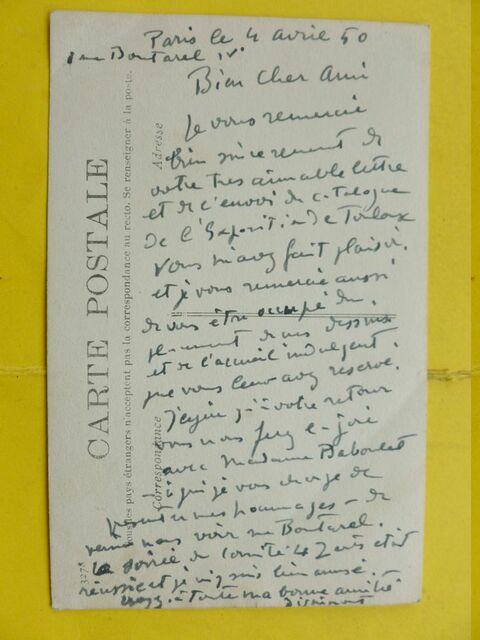 Paris le 4 avril 50
rue Boutarel IV
Bien cher Ami
Je vous remercie
bien sincèrement de
votre très aimable lettre
et de l'envoi du catalogue
de l'Exposition de
Vous m'avez fait plaisir,
et je vous remercie aussi
de vous être occupé du
de mes dessins
et de l'accueil indulgent
que vous leur avez réservé.
J'espère qu'à votre retour
vous nous ferez la joie
avec Madame
à qui je vous charge de
présenter mes hommages - de
venir nous voir rue Boutarel.
La soirée du comité était
réussie et je m'y suis bien amusé.
à toute ma bonne amitié
CARTE POSTALE
Tous les pays étrangers n'acceptent pas la correspondance au recto. Se renseigner à la poste.
Correspondance
Adresse
3278